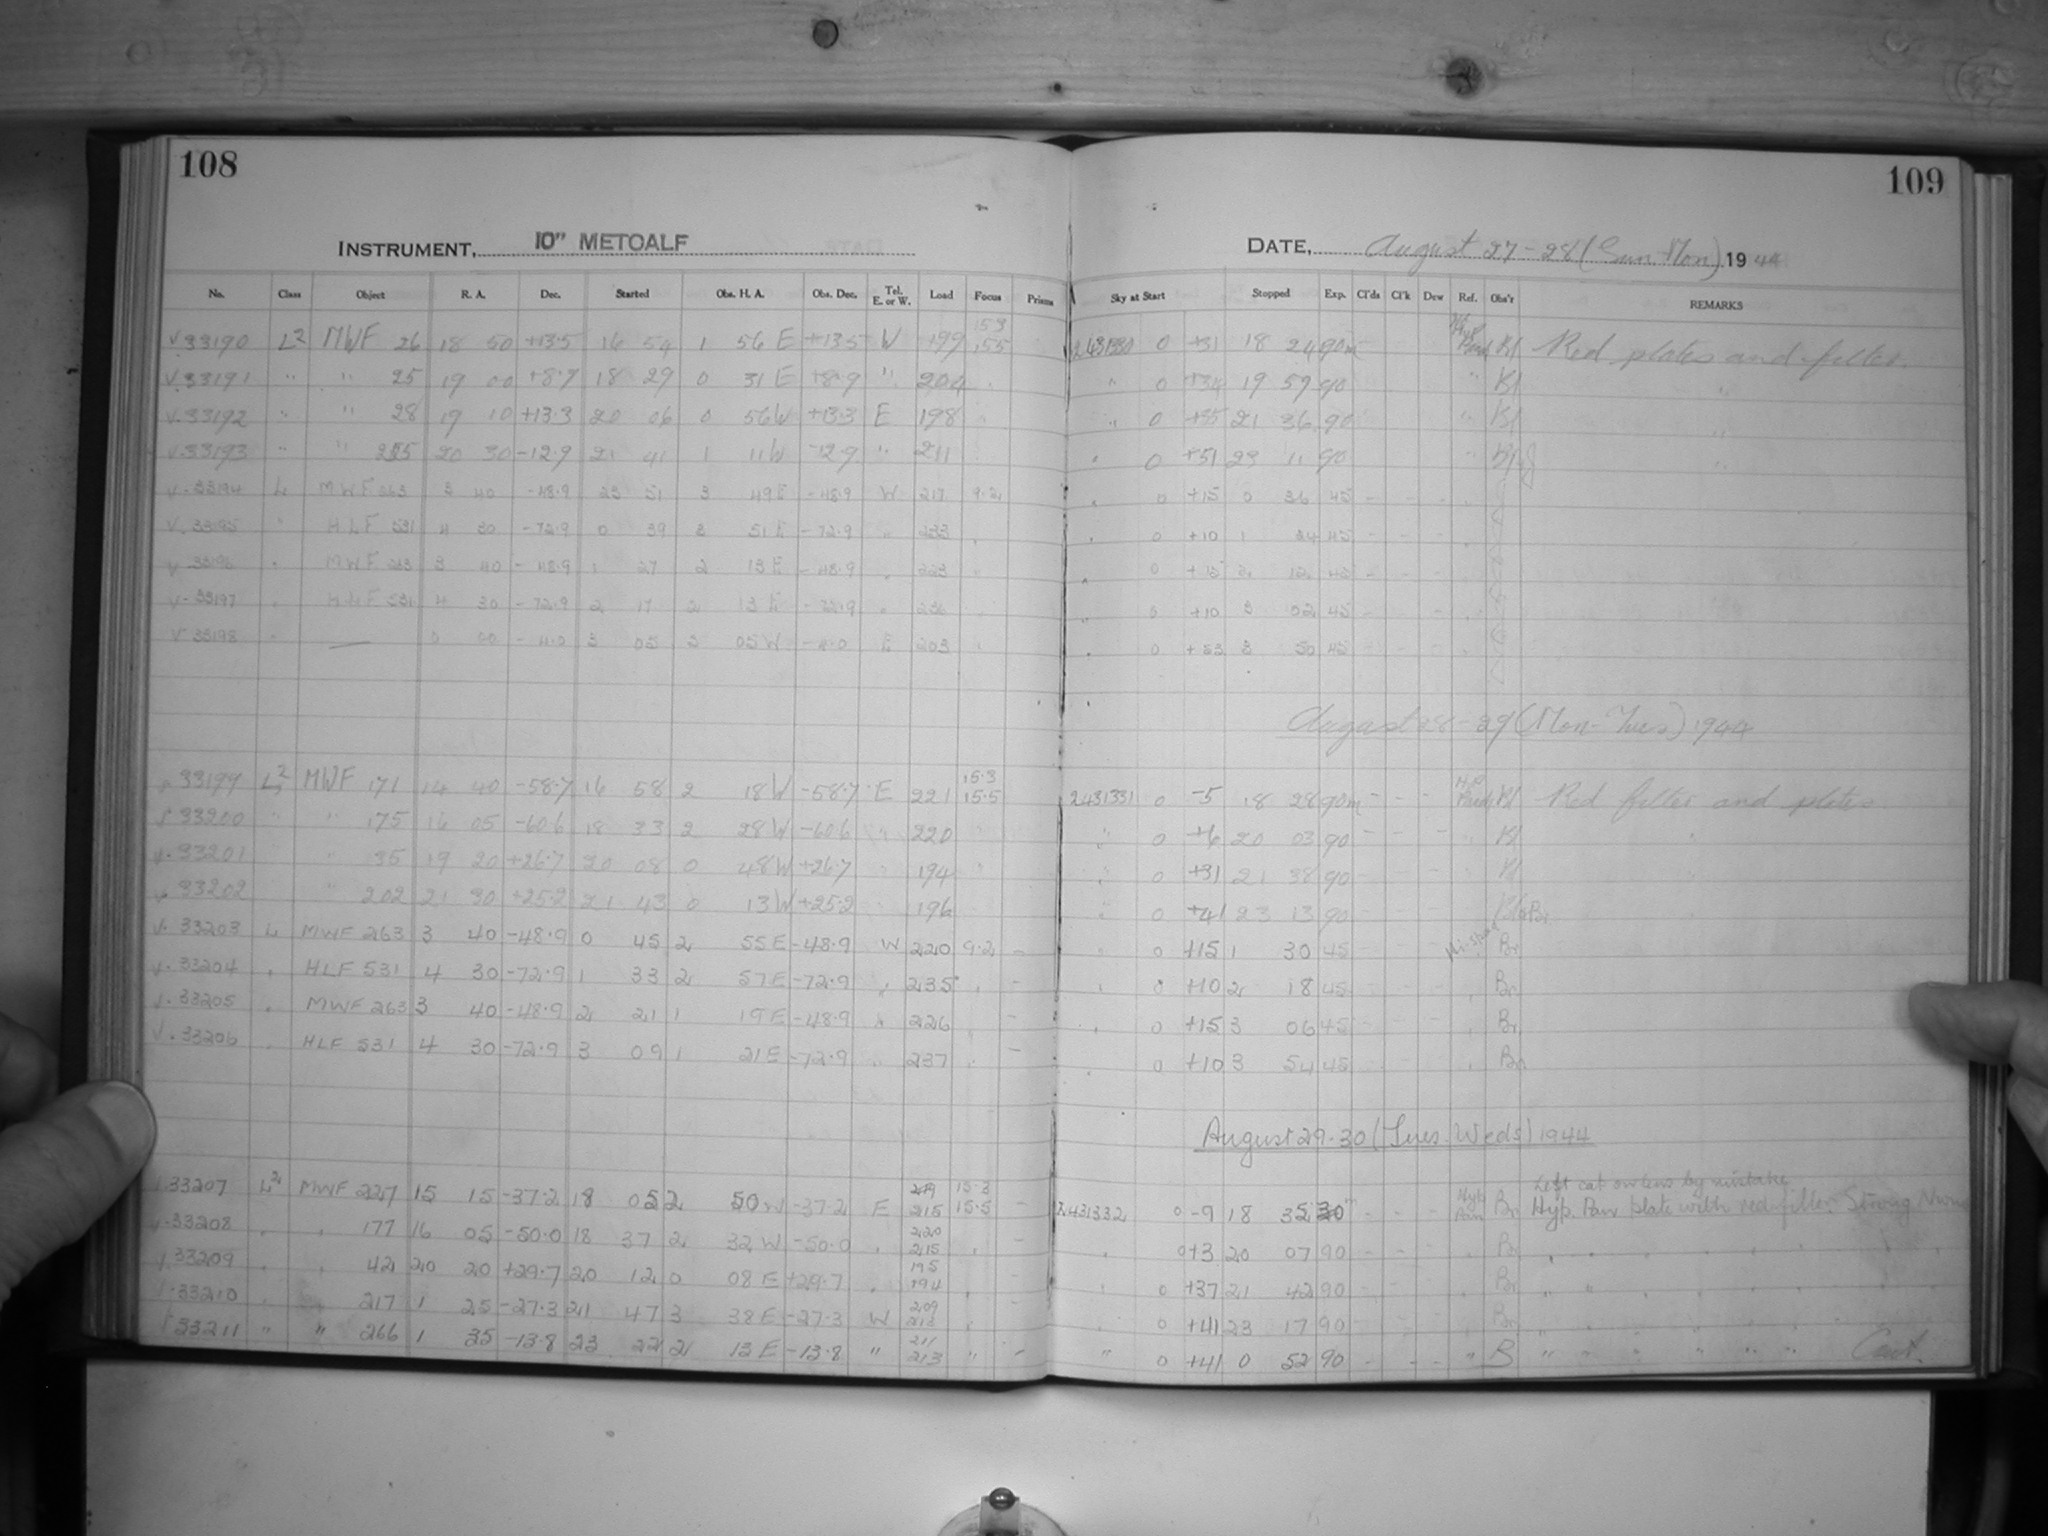 108
INSTRUMENT, 10" METCALF
No. Class Object R. A. Dec. Started Obs. H. A. Obs. Dec. Tel. E. or W. Load Focus Prisms
33190 L2 MWF 26 18 50 +13.5 16 54 1 56 E +13.5 W 199 153 155
33191 " " 25 19 00 +8.9 18 29 0 31 E +8.9 " 204
33192 " " 28 19 10 +13.3 20 06 0 56 W +13.3 E 198
33193 " " 20 30 -12.9 21 41 1 11 W -12.9 " 211
33194 L MWF 263 3 40 -48.9 23 51 3 49 E -48.9 W 217 9.2
33195 " HLF 531 4 30 -72.9 0 39 3 51 E -72.9 " 233
33196 " MWF 263 3 40 -48.9 1 27 2 13 E -48.9 " 223
33197 " HLF 531 4 30 -72.9 2 17 2 13 E -72.9 " 236
33198 " — 0 00 -4.0 3 05 2 05 W -4.0 E 203
33199 L2 MWF 171 14 40 -58.7 16 58 2 18 W -58.7 E 221 15.3 15.5
33200 " " 175 16 05 -60.6 18 33 2 28 W -60.6 " 220
33201 " 35 19 20 +26.7 20 08 0 48 W +26.7 " 194
33202 " 202 21 30 +25.2 21 43 0 13 W +25.2 196
33203 L MWF 263 3 40 -48.9 0 45 2 55 E -48.9 W 220 9.2 -
33204 " HLF 531 4 30 -72.9 1 33 2 57 E -72.9 " 235 " -
33205 " MWF 263 3 40 -48.9 2 21 1 19 E -48.9 " 226 -
33206 " HLF 531 4 30 -72.9 3 09 1 21 E -72.9 " 237 " -
33207 L2 MWF 227 15 15 -37.2 18 05 2 50 W -37.2 E 219 215 15.3 15.5 -
33208 " " 177 16 05 -50.0 18 37 2 32 W -50.0 " 220 215 " -
33209 " " 42 20 20 +29.7 20 12 0 08 E +29.7 " 195 194 " -
33210 " " 217 1 25 -27.3 21 47 3 38 E -27.3 W 209 212 " -
33211 " " 266 1 35 -13.8 23 22 2 13 E -13.8 " 211 213 " -
109
DATE, August 27-28 (Sun. Mon) 1944
Sky at Start Stopped Exp. Cl'ds Cl'k Dew Ref. Obs'r REMARKS
2431330 0 +31 18 24 90m Kl Red plates and filter.
" 0 +34 19 59 90 " Kl "
" 0 +35 21 36 90 " Kl "
" 0 +51 23 11 90 " "
" 0 +15 0 36 45 - - -
" 0 +10 1 24 45 - - - "
" 0 +15 2 12 45 - - -
" 0 +10 3 02 45 - - - "
" 0 +53 3 50 45 - - - "
August 28-29 (Mon-Tues) 1944
2431331 0 -5 18 28 90m - - - Kl Red filter and plates
" 0 +6 20 03 90 - - - " Kl "
" 0 +31 21 38 90 - - - " Kl
" 0 +41 23 13 90 - - - "
" 0 +15 1 30 45 - - - Br
" 0 +10 2 18 45 - - - " Br
" 0 +15 3 06 45 - - - " Br
" 0 +10 3 54 45 - - - " Br
August 29-30 (Tues. Weds) 1944
Left cap on lens by mistake
2431332 0 -9 18 35 30m - - - Hyp Pan Br Hyp. Pan plate with red filter. Strong
" 0 +3 20 07 90 - - - " Br " " " " " "
" 0 +37 21 42 90 - - - " Br " " " " " "
" 0 +41 23 17 90 - - - " Br " " " " " "
" 0 +41 0 52 90 - - - " B " " " " " " Cont.